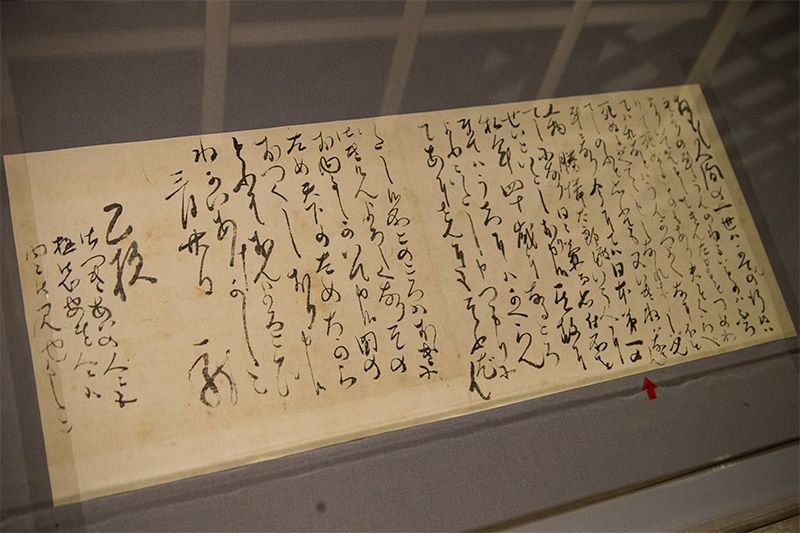 扨も〳〵人間の一世ハがてんの行ぬハ
元よりの事うんのわるいものハふろ
よりいでんとしてきんたまをつめわ
りて死ぬるものもあり夫とくらべ
てハ私などハうんがつよくなにほど
死ぬるバへでゝもしなれずじぶんで
しのふと思ふても又いきねバならん
事ニなり今にてハ日本第一の
人物勝憐太郎殿という人に
でしになり日々兼而思付所を
せいといたしおり申候其故に
私年四十歳になるころ
までハうちにハかへらん
よふニいたし申つもりに
てあにさんにもそふだん
いたし候所このごろハおゝきに
御きげんよろしくなりその
おゆるしがいで申候国の
ため天下のためちから
おつくしおり申候
どふぞおんよろこび
ねがいあげかしこ
三月廿日 龍
乙様
御つきあいの人ニも
極御心安き人ニハ
内々御見せかしこ